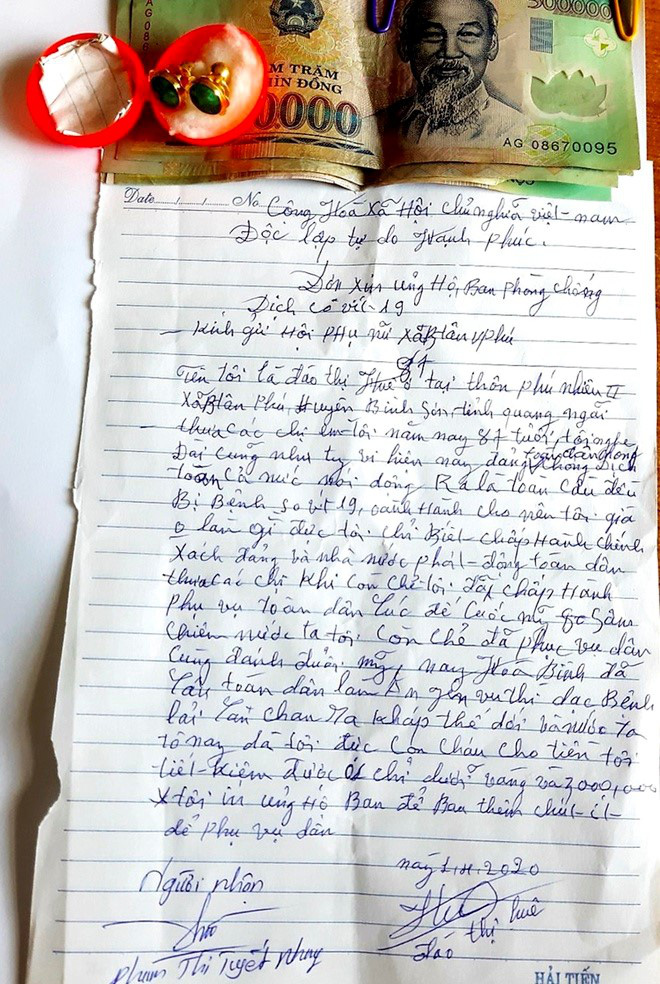 AG 086
500000
M TRĂM
HÌN ĐỒNG
0000
AG 08670095
Date / / No
Cộng Hoà Xã Hội chủ nghĩa việt-nam
Độc lập tự do Hạnh phúc.
Đơn xin ủng Hộ, Ban phòng chống
Dịch cô vit-19
- Kính gửi Hội phụ nữ xã Btân phú
Tên tôi là đào thị Huê ở tại thôn phú nhiêu II
xã Btân Phú, Huyện Bình Sơn, tỉnh quảng ngãi
- thưa các chị em tôi năm nay 87 tuổi, tôi nghe
Đài cũng như ty vi hiện nay đảng phòng Dịch
toàn cả nước nói động Ra là toàn cầu đều
Bị Bệnh so vít 19, oành Hành cho nên tôi già
o làm gì đức tôi chỉ Biết chấp Hành chính
xách đảng và nhà nước phát-động toàn dân
thưa các chị Khi còn chẻ tôi đã chấp Hành
phụ vụ toàn dân lúc đế cuốc mỹ sâm
chiêm nước ta tôi còn chẻ đã phục vụ dân
cùng đánh đuổi mỹ, nay Hoà Bình đã
toàn dân làm Ăn yên vui thì Bệnh
lại chan Ra khắp thế dới và nước ta
nay đã tôi đức con cháu cho tiền tôi
tiết-Kiệm được chỉ vang và 3000,000
tôi in ủng Hộ Ban để Ban thêm chút-ít-
để phụ vụ dân
2020
Người nhận
thị Huê
Đào
phạm Thị Tuyết Nhung
HẢI TIẾN